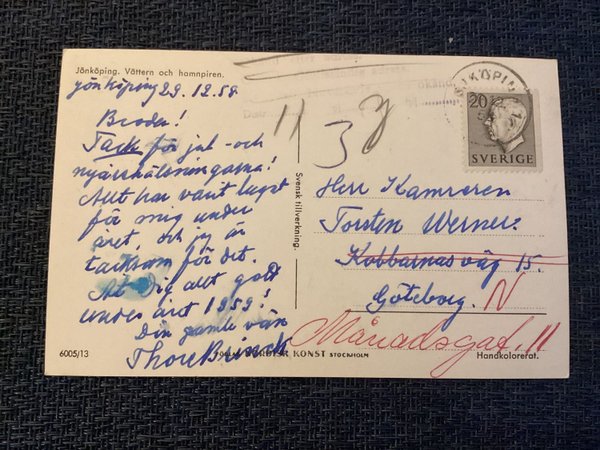 Jönköping. Vättern och hamnpiren.
Jönköping 29.12.58
Broder!
Tack för jul-och
nyårshälsningarna!
Allt har varit lugnt
för mig under
året, och jag är
tacksam för det.
Att Dig allt gott
under året 1959!
Din gamle vän
Thore Brinck
6005/13
Svensk tillverkning.
NORDISK KONST STOCKHOLM
Handkolorerat.
okänd
11
3
KÖPING
20
SVERIGE
Herr Kamreren
Torsten Werner
Kobbarnas väg 15.
Göteborg. N
Månadsgat. 11